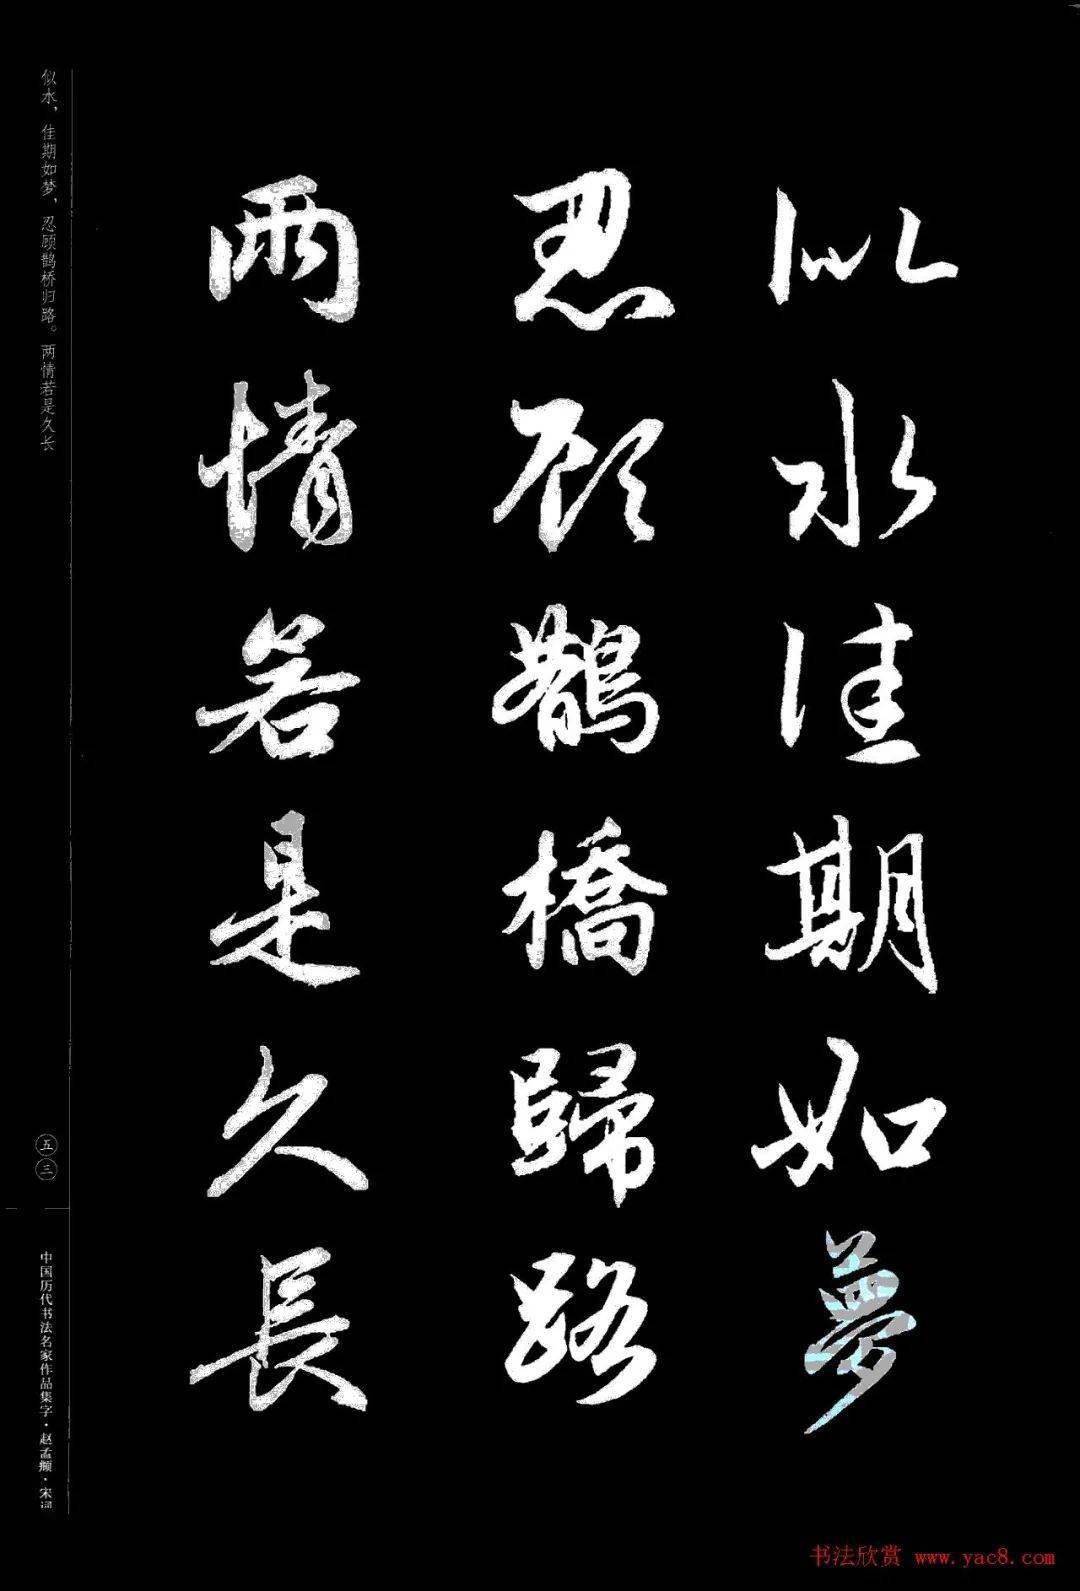 似水佳期如夢
忍顾鵲橋歸路
兩情若是久長
似水，佳期如梦，忍顾鹊桥归路。两情若是久长
五三
中国历代书法名家作品集字·赵孟頫·宋词
书法欣赏 www.yac8.com